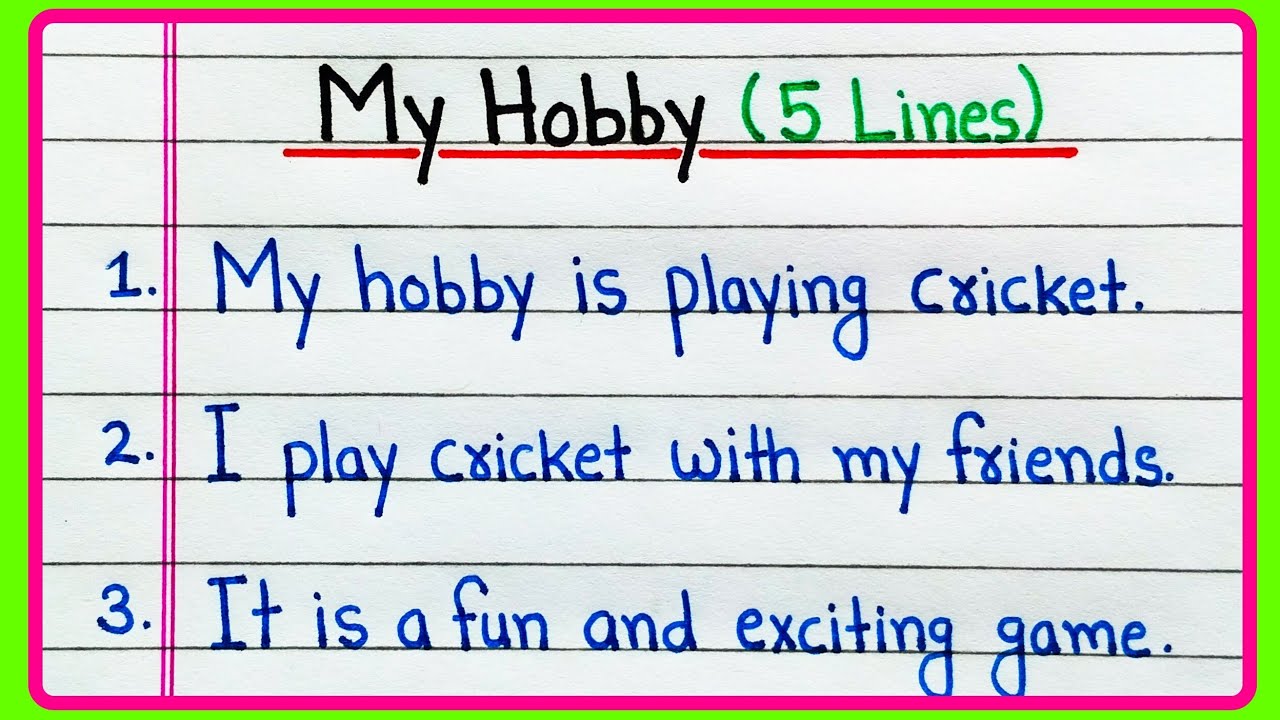 My Hobby (5 Lines)
1. My hobby is playing cricket.
2. I play cricket with my friends.
3. It is a fun and exciting game.